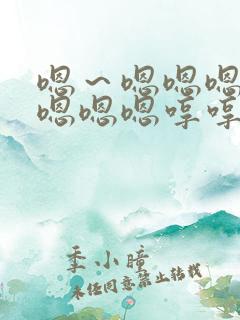 嗯～嗯嗯嗯
嗯嗯嗯哼哼
季小瞳
未经同意禁止转载